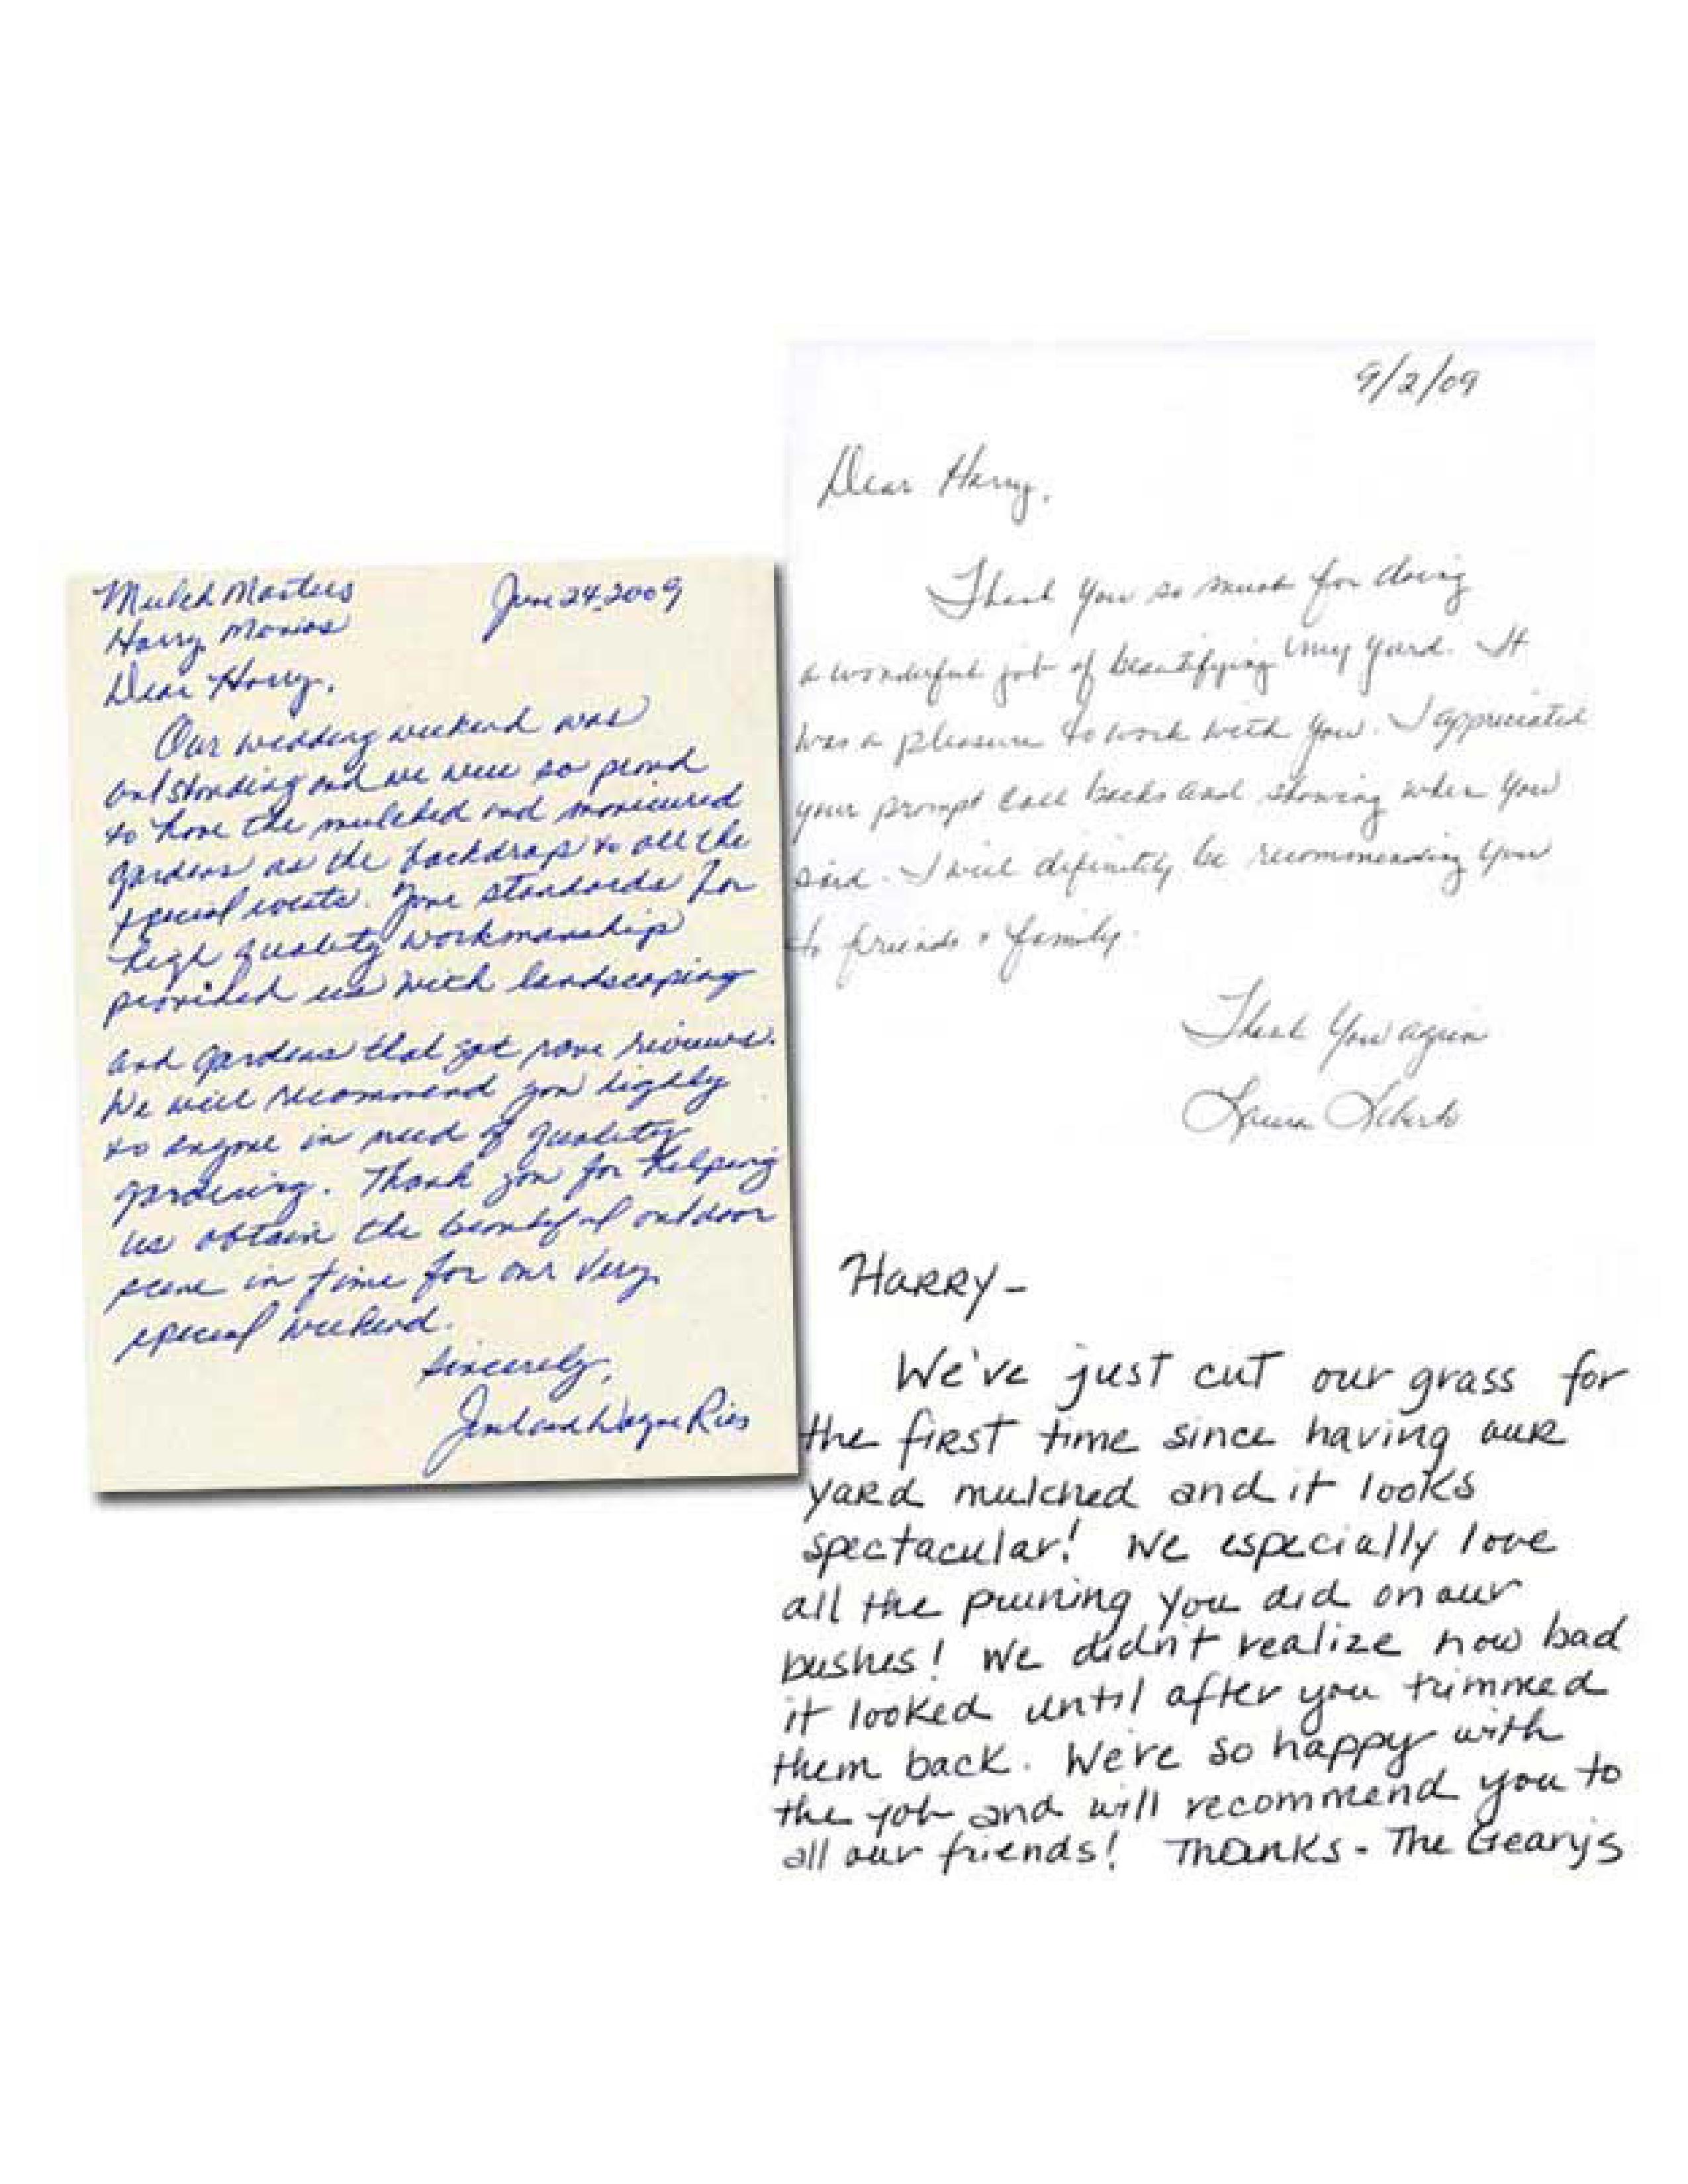 Mulch Masters June 24, 2009
Harry
Dear Harry,
Our wedding weekend was
outstanding and we were so proud
to have the mulched and manicured
gardens as the backdrop to all the
special events. Your standards for
high quality workmanship
provided us with landscaping
and gardens that got rave reviews.
We will recommend you highly
to anyone in need of quality
gardening. Thank you for helping
us obtain the beautiful outdoor
scene in time for our very
special weekend.
Sincerely,
and Wayne Ries
9/2/09
Dear Harry,
Thank you so much for doing
a wonderful job of beautifying my yard. It
was a pleasure to work with you. I appreciated
your prompt call backs and showing when you
said. I will definitely be recommending you
to friends + family.
Thank You again
Laura
HARRY-
We've just cut our grass for
the first time since having our
yard mulched and it looks
spectacular! We especially love
all the pruning you did on our
bushes! We didn't realize how bad
it looked until after you trimmed
them back. We're so happy with
the job and will recommend you to
all our friends! Thanks - The Geary's